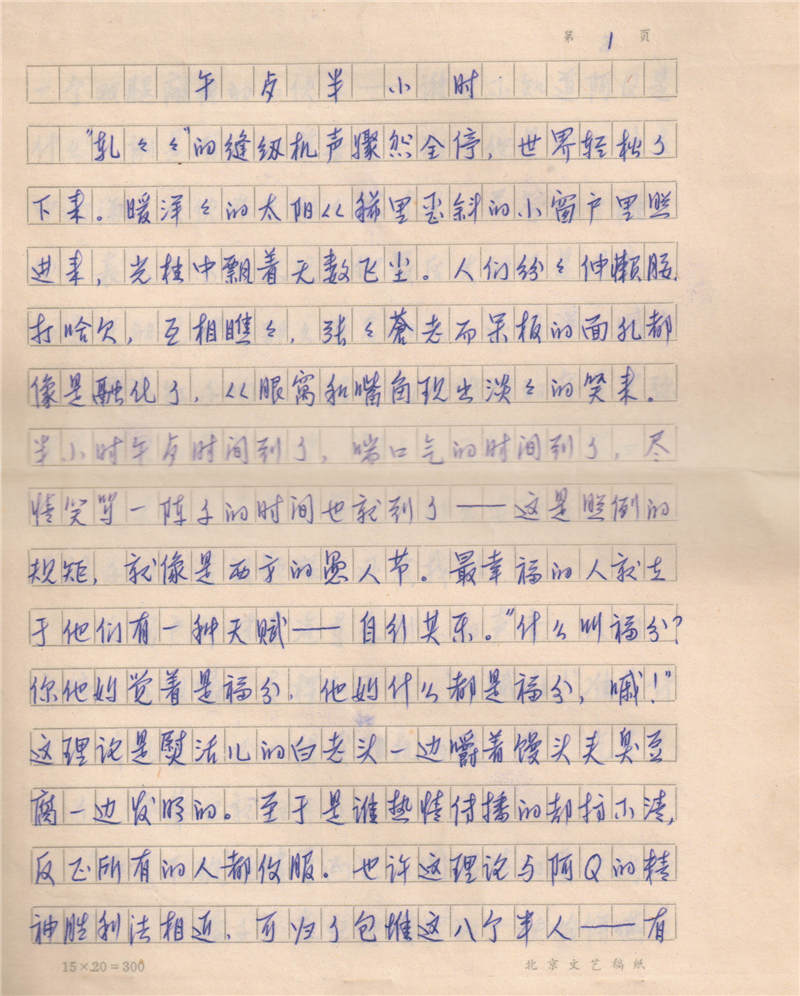 第 1 页
午歺半小时
"轧々々"的缝纫机声骤然全停，世界轻松了
下来。暖洋々的太阳从稀里歪斜的小窗户里照
进来，光柱中飘着无数飞尘。人们纷々伸懒腰，
打哈欠，互相瞧々，张々苍老而呆板的面孔都
像是融化了，从眼窝和嘴角现出淡々的笑来。
半小时午歺时间到了，喘口气的时间到了，尽
情笑骂一阵子的时间也就到了——这是照例的
规矩，就像是西方的愚人节。最幸福的人就在
于他们有一种天赋——自行其乐。"什么叫福分？
你他妈觉着是福分，他妈什么都是福分，嘁！"
这理论是熨活儿的白老头一边嚼着馒头夹臭豆
腐一边发明的。至于是谁热情传播的却扐不清，
反正所有的人都佼服。也许这理论与阿Q的精
神胜利法相近，可归了包堆这八个半人——有
15×20=300
北京文艺稿纸